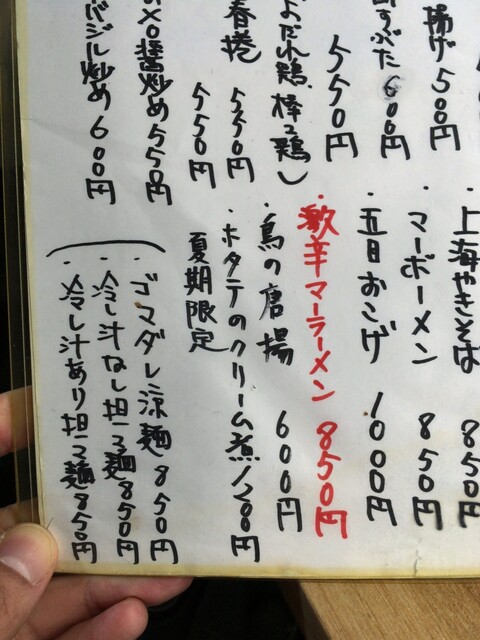 揚げ500円
すぶた600円
550円
よだれ鶏、棒々鶏し
550円
春捲
550円
XO醤炒め550円
バジル炒め600円
・上海やきそば 850円
・マーボーメン 850円
・五目おこげ 1000円
・激辛マーラーメン 850円
・鳥の唐揚 600円
・ホタテのクリーム煮1200円
夏期限定
・ゴマダレ涼麺850円
・冷し汁なし担々麺850円
・冷し汁あり担々麺850円